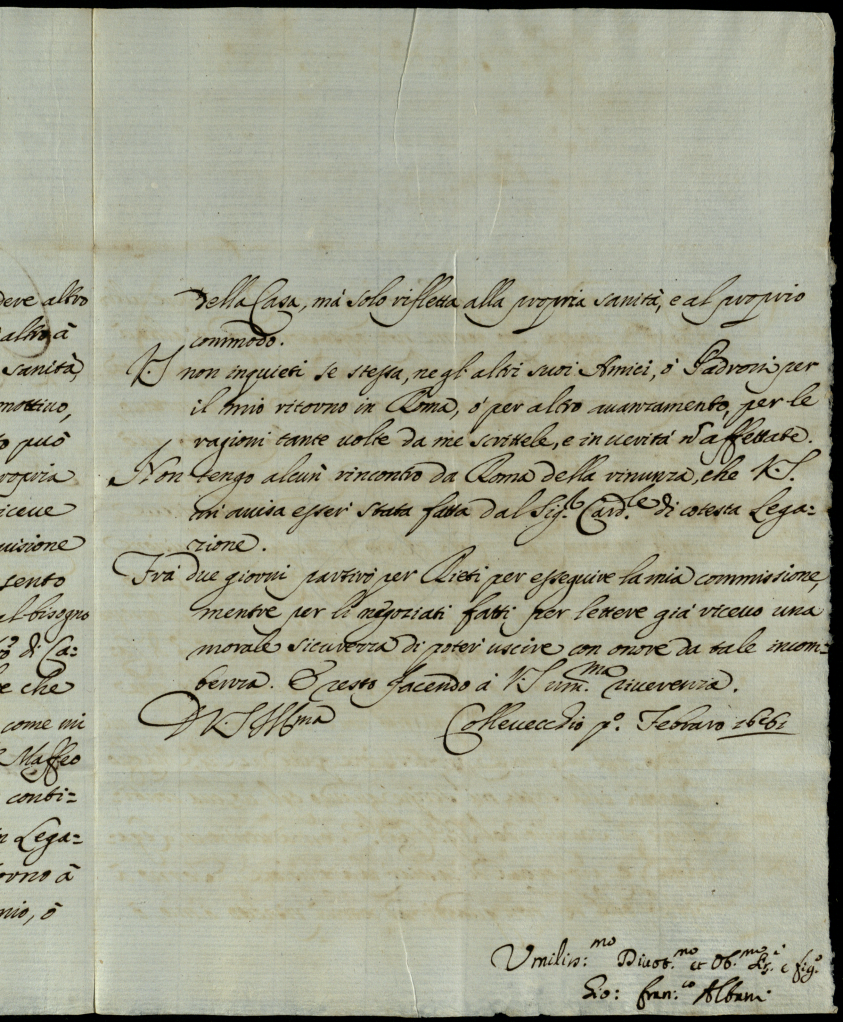 dere altro
altro, à
sanità,
mottiuo,
to può
propria
riceue
uisione
sento
al bisogno
di Ca-
e che
come mi
Maffeo
conti=
n Lega=
orno à
mio, ò
della Casa, mà solo rifletta alla propria sanità, e al proprio
commodo.
V.S. non inquieti se stessa, ne gl'altri suoi Amici, ò Padroni per
il mio ritorno in Roma, ò per altro auanzamento, per le
ragioni tante uolte da me scrittele, e in uerità nõ affettate.
Non tengo alcun rincontro da Roma della rinunza, che V.S.
mi auisa esser stata fatta dal Sig.r Card.le di cotesta Lega=
zione.
Frà due giorni partirò per Rieti per esseguire la mia commissione,
mentre per li negoziati fatti per lettere già riceuo una
morale sicurezza di poter uscire con onore da tale incom=
benza. E resto facendo à V.S. um.ma riuerenza.
D V.S. Ill.ma Colleuecchio p.o Febraro 1686
Umiliss:mo Diuot.mo et Ob.mo Ser. e fig.o
Gio: Fran.co Albani